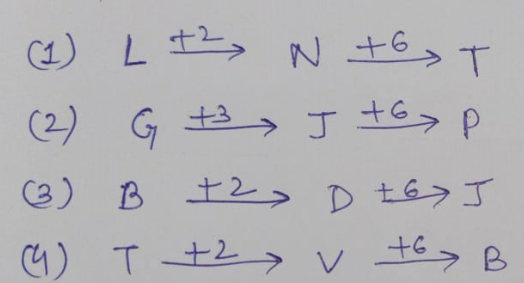 (1) L +2→ N +6→ T
(2) G +3→ J +6→ P
(3) B +2→ D +6→ J
(4) T +2→ V +6→ B